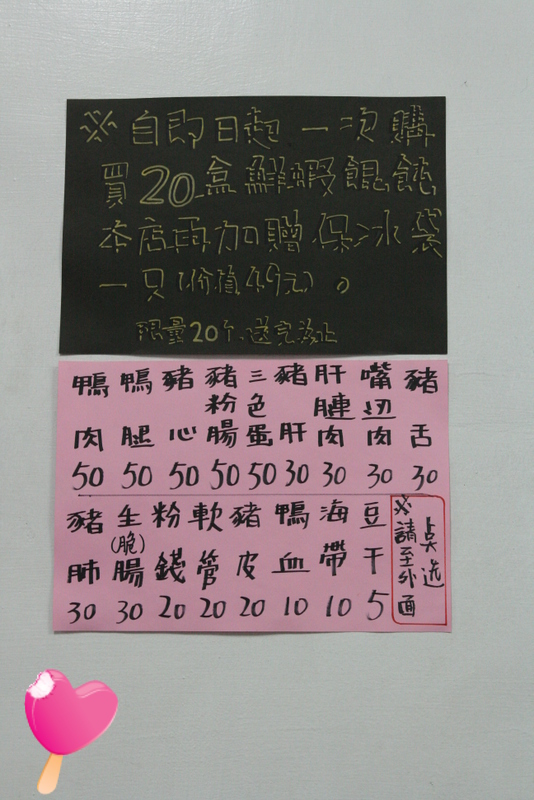 ※自即日起一次購
買20盒鮮蝦餛飩
本店再加贈保冰袋
一只(价值49元)。
限量20个、送完為止
鴨肉 50
鴨腿 50
豬心 50
豬粉腸 50
三色蛋 50
豬肝 30
肝腱肉 30
嘴边肉 30
豬舌 30
豬肺 30
生(脆)腸 30
粉錢 20
軟管 20
豬皮 20
鴨血 10
海帶 10
豆干 5
※請至外面
点选